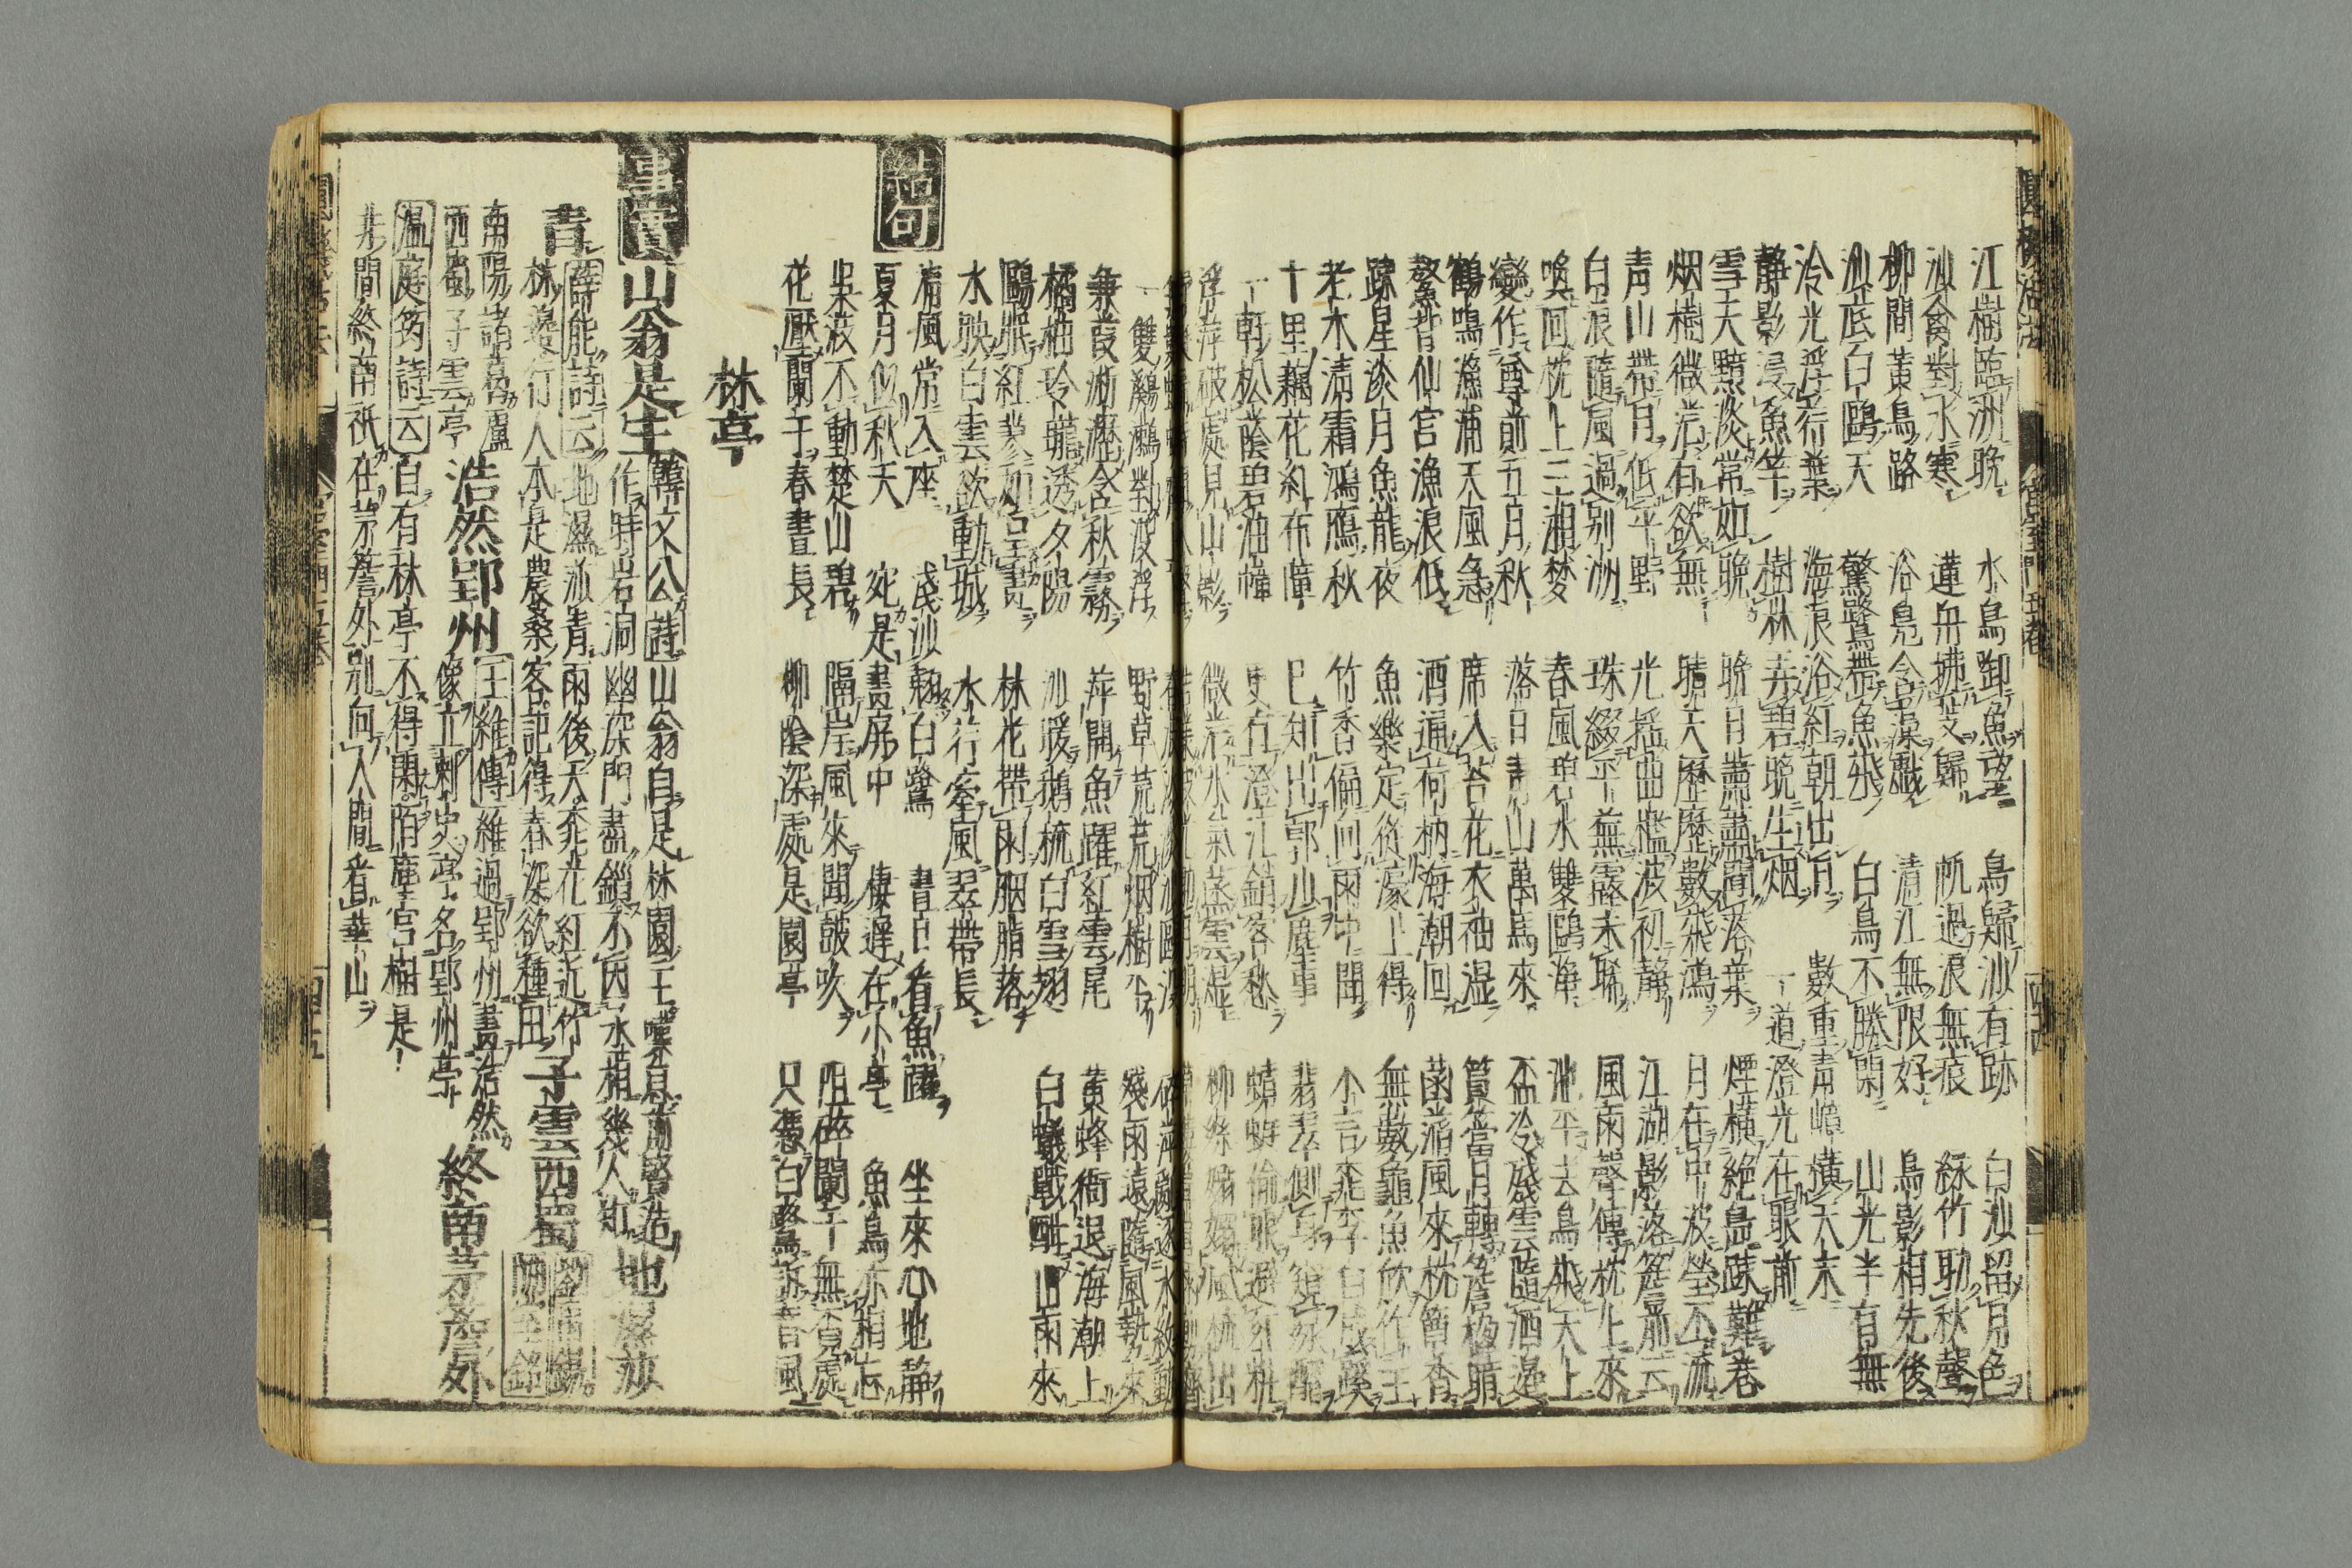 江樹臨洲晩 水鳥卸魚望 鳥歸沙有跡 白沙留月色
沙禽對水寒 蓮舟拂芰歸 帆過浪無痕 綠竹助秋聲
柳間黃鳥路 浴鳧令 藻戲 清江無限好 鳥影相先後
沙底白鷗天 驚鷺帶魚飛 白鳥不勝閑 山光半有無
冷光浮荇葉 海浪浴紅朝出月 數重青嶂橫天末
靜影浸魚竿 樹林弄碧晩生烟 一道澄光在眼前
雪天黯淡常如晩 晩日蕭蕭聞落葉 煙橫絶島踈難卷
烟樹微茫有欲無 晴天歷歷數飛鴻 月在中波瑩不流
青山帶月低平野 光搖曲檻波初靜 江湖影落簷前云
白浪隨風過別洲 珠綴平蕪露未晞 風雨聲傳枕上來
喚回枕上三湘夢 春風碧水雙鷗淨 洲平去鳥飛天上
變作尊前五月秋 落日青山萬馬來 盃冷殘雲隨酒邊
鶴鳴漁浦天風急 席入苔花衣袖湿 篔簹月轉簷楹暗
鰲背仙宮漁浪低 酒逼荷柄海潮回 菡萏風來枕簟香
踈星淡月魚龍夜 魚樂定從濠上得 無數龜魚欣作主
老木淸霜鴻鴈秋 竹香偏向雨中聞 不言桃李自成蹊
十里藕花紅布障 已知出郭少塵事 翡翠側身窺綠醑
一軒松蔭碧油幢 更有澄江銷客愁 蜻蜓偷眼避紅粧
浮萍破處見山影 微茫水氣蒸雲湿 柳絲嫋嫋風 出
一雙鸂鶒對沒浮 野草荒荒烟樹 殘雨遠隨風勢來
蒹葭淅瀝含秋霧 萍開魚躍紅雲尾 黃蜂衙退海潮上
橘柚玲瓏透夕陽 沙暖鵝梳白雪翅 白蟻戰酣山雨來
鷗眠紅蓼如呈畫 林花帶雨胭脂落
水映白雲欲動城 水荇牽風翠帶長
結句 淸風常入座 淺沙翹白鷺 晝日看魚躍 坐來心地靜
夏月似秋天 宛是畫屏中 棲遲在小亭 魚鳥亦相忘
吳波不動楚山碧 隔岸風來聞鼓吹 阻碎闌干無 處
花壓闌干春晝長 柳陰深處是園亭 只憑白鷺訴春風
林亭
事實 山翁是主 韓文公詩 山翁自是林園主 嘆息前賢造
作時 岩洞幽深門盡鎖 不因丞相幾人知 地濕莎
靑 薛能詩云 地濕莎青雨後天 桃花紅近竹
林邊 行人本是農桑客 記得春深欲種田 子雲西蜀 劉禹錫 陋室銘
南陽諸葛廬
西蜀子雲亭 浩然郢州 王維傳 維過郢州 畫浩然
像於刺史亭 名郢州亭 終南茅簷外
溫庭筠詩云 自有林亭不得閑 陌塵宮樹是
非間 終南祇在茅簷外 別向人間看華山